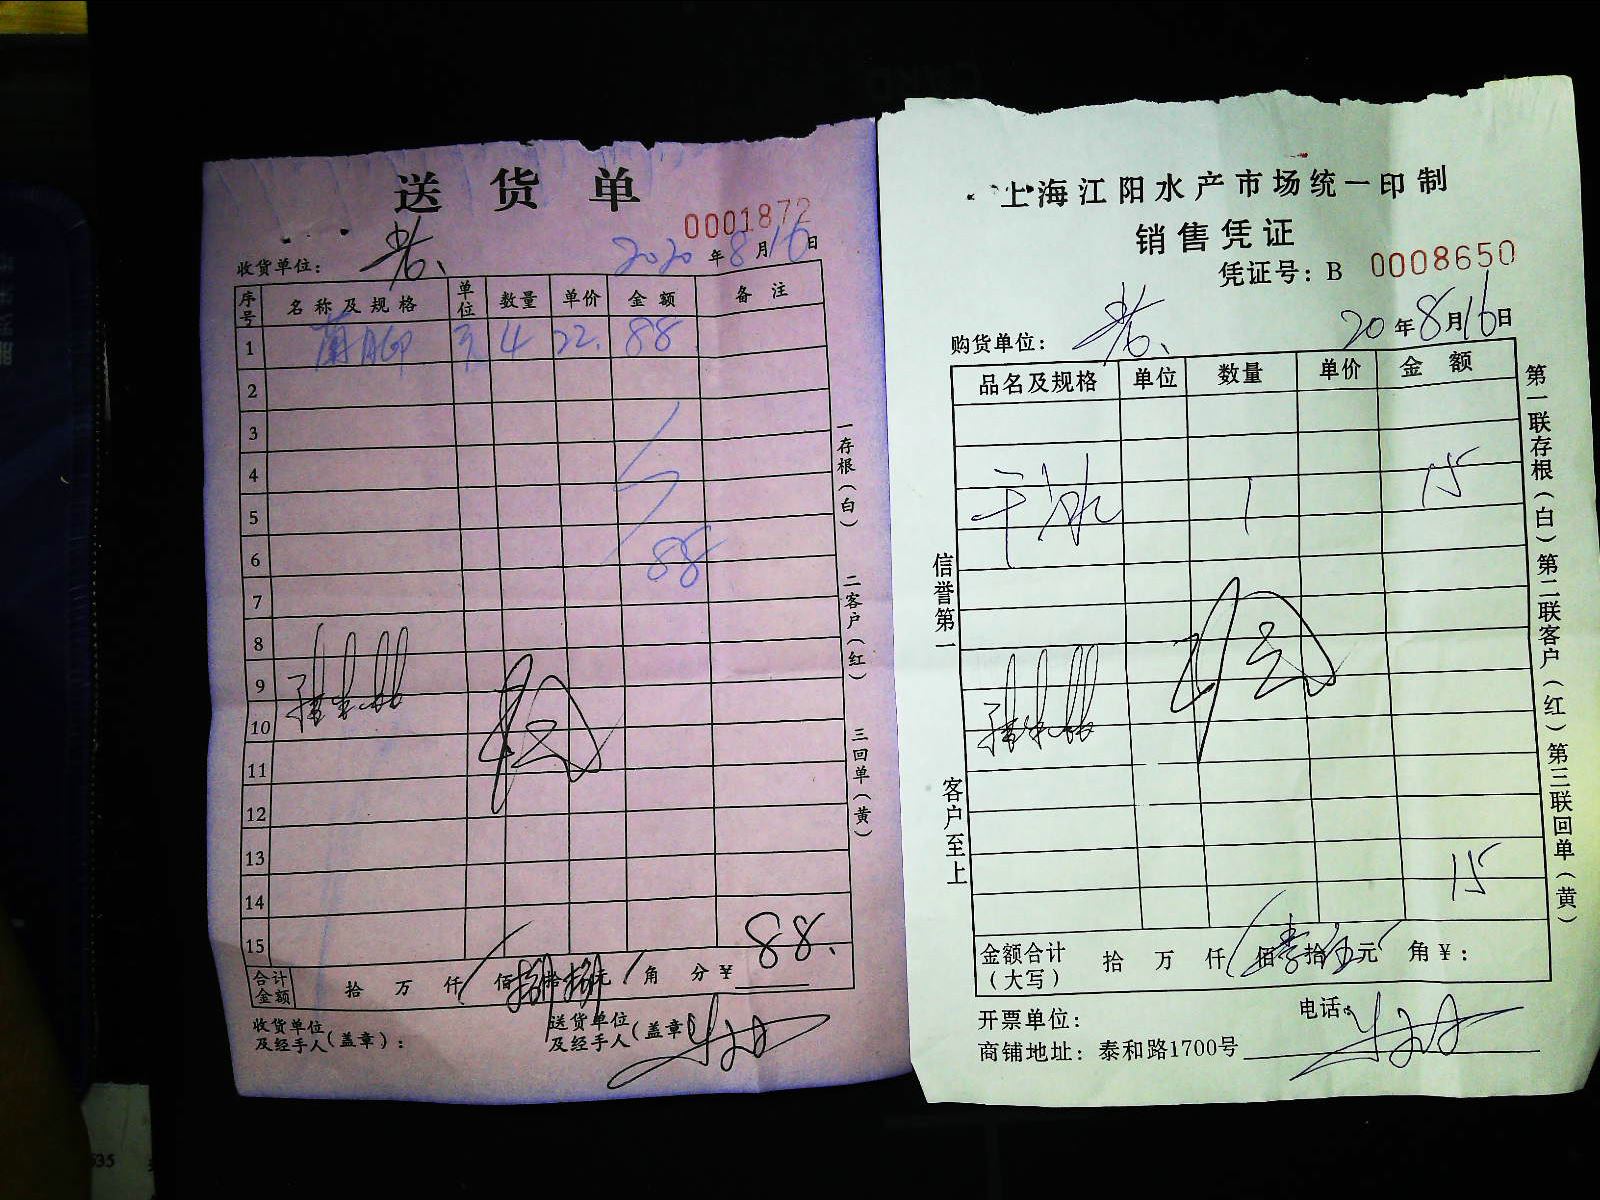 送货单
0001872
收货单位：
2020年8月16日
序号 名称及规格 单位 数量 单价 金额 备注
1 4 22. 88
2
3
4
5
6 88
7
8
9
10
11
12
13
14
15
合计金额 拾 万 仟 佰捌拾捌元 角 分¥ 88.
收货单位及经手人(盖章)：
送货单位及经手人(盖章
一存根(白) 二客户(红) 三回单(黄)
上海江阳水产市场统一印制
销售凭证
凭证号：B 0008650
购货单位：
20年8月16日
品名及规格 单位 数量 单价 金额
干冰 1 15
15
金额合计(大写) 拾 万 仟 佰壹拾伍元 角¥：
开票单位：
电话
商铺地址：泰和路1700号
信誉第一 客户至上
第一联存根(白)第二联客户(红)第三联回单(黄)